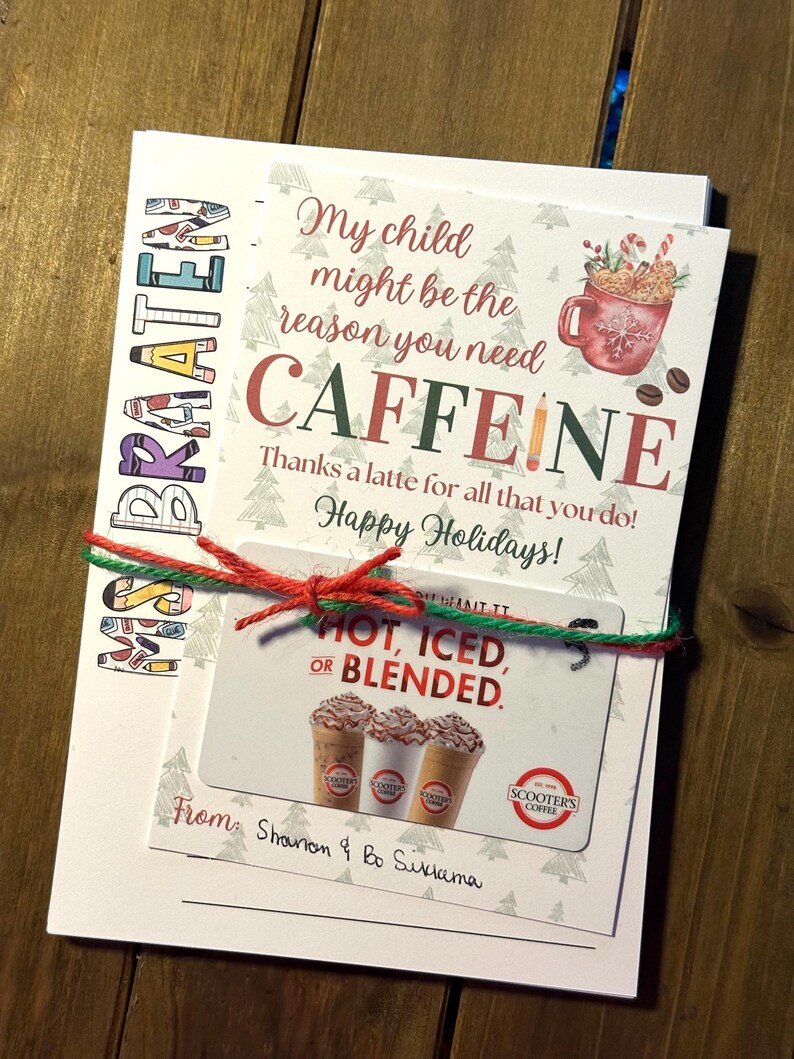 MS BRAATEN
My child
might be the
reason you need
CAFFEINE
Thanks a latte for all that you do!
Happy Holidays!
WANT IT
HOT, ICED,
OR BLENDED.
SCOOTER'S
COFFEE
SCOOTER'S
COFFEE
SCOOTER'S
COFFEE
EST. 1998
SCOOTER'S
COFFEE
From: Shanon & Bo Sikkema